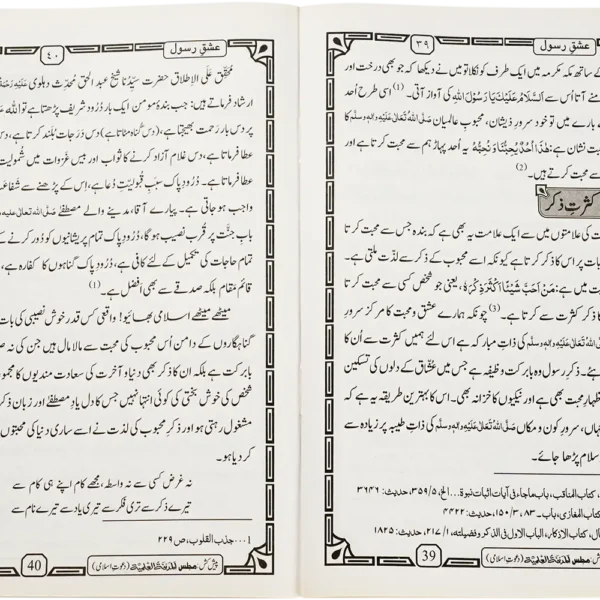 ۳۹
عشقِ رسول
کے ساتھ مکہ مکرمہ میں ایک طرف کو نکلا تو میں نے دیکھا کہ جو بھی درخت اور
منے آتا اُس سے اَلسَّلَامُ عَلَیْكَ یَا رَسُوْلَ اللہِ کی آواز آتی۔ (1) اسی طرح اُحد
بارے میں تو خود سرورِ ذیشان، محبوبِ عالمیان صَلَّی اللہُ تَعَالٰی عَلَیْہِ وَاٰلِہٖ وَسَلَّم کا
نشان ہے: ھٰذَا اُحُدٌ یُحِبُّنَا وَنُحِبُّہٗ یہ اُحد پہاڑ ہم سے محبت کرتا ہے اور
سے محبت کرتے ہیں۔ (2)
کثرتِ ذکر
ت کی علامتوں میں سے ایک علامت یہ بھی ہے کہ بندہ جس سے محبت کرتا
پر اس کا ذکر کرتا ہے کیونکہ اسے محبوب کے ذکر سے لذّت ملتی ہے۔
میں ہے: مَنْ اَحَبَّ شَیْئًا اَکْثَرَ ذِکْرَہٗ، یعنی جو شخص کسی سے محبت کرتا
کا ذکر کثرت سے کرتا ہے۔ (3) چونکہ ہمارے عشق و محبت کا مرکز سرورِ
صَلَّی اللہُ تَعَالٰی عَلَیْہِ وَاٰلِہٖ وَسَلَّم کی ذاتِ مبارکہ ہے اس لئے ہمیں کثرت سے اُن کا
ئے۔ ذکرِ رسول وہ بابرکت وظیفہ ہے جس میں عشّاق کے دلوں کی تسکین
اظہارِ محبت بھی ہے اور نیکیوں کا خزانہ بھی۔ اس کا بہترین طریقہ یہ ہے کہ
جہاں، سرورِ کون و مکاں صَلَّی اللہُ تَعَالٰی عَلَیْہِ وَاٰلِہٖ وَسَلَّم کی ذاتِ طیبہ پر زیادہ سے
سلام پڑھا جائے۔
، کتاب المناقب، باب ماجاء فی آیات اثبات نبوۃ...الخ، ۵/۳۵۹، حدیث: ۳۶۴۶
، کتاب المغازی، باب۔۸۳، ۳/۱۵۰، حدیث: ۴۴۲۲
ال، کتاب الاذکار، الباب الاول فی الذکر و فضیلتہ، ۱/۲۱۷، حدیث: ۱۸۲۵
39
پیش کش: مجلس المدینۃ العلمیۃ (دعوتِ اسلامی)
۴۰
عشقِ رسول
مُحقِّق عَلَی الْاِطلاق حضرت سیّدُنا شیخ عبد الحق مُحدِّث دہلوی
ارشاد فرماتے ہیں: جب بندۂ مومن ایک بار دُرُود شریف پڑھتا ہے تو اللہ
پر دس بار رحمت بھیجتا ہے، (دس گناہ مٹاتا ہے) دس دَرَجات بُلند کرتا ہے، دس
عطا فرماتا ہے، دس غلام آزاد کرنے کا ثواب اور بیس غزوات میں شُمولیت
عطا فرماتا ہے۔ دُرُودِ پاک سببِ قبولیّتِ دُعا ہے، اِس کے پڑھنے سے شفاعت
واجب ہو جاتی ہے۔ پیارے آقا، مدینے والے مصطفےٰ صَلَّی اللہُ تَعَالٰی عَلَیْہِ
بابِ جنّت پر قُرب نصیب ہوگا، دُرُودِ پاک تمام پریشانیوں کو دُور کرنے کے
تمام حاجات کی تکمیل کے لئے کافی ہے، دُرُودِ پاک گناہوں کا کفّارہ ہے،
قائم مقام بلکہ صدقے سے بھی افضل ہے۔ (1)
میٹھے میٹھے اسلامی بھائیو! واقعی کس قدر خوش نصیبی کی بات
گناہگاروں کے دامن اُس محبوب کی محبت سے مالا مال ہیں جن کی نہ
بابرکت ہے بلکہ ان کا ذکر بھی دنیا و آخرت کی سعادت مندیوں کا مجموعہ
شخص کی خوش بختی کی کوئی انتہا نہیں جس کا دل یادِ مصطفےٰ اور زبان ذکرِ
مشغول رہتی ہو اور ذکرِ محبوب کی لذت نے اسے ساری دنیا کی محبتوں
کر دیا ہو۔
نہ غرض کسی سے نہ واسطہ، مجھے کام اپنے ہی کام سے
تیرے ذکر سے تری فکر سے تیری یاد سے تیرے نام سے
1...جذب القلوب، ص ۲۲۹
40
پیش کش: مجلس المدینۃ العلمیۃ (دعوتِ اسلامی)